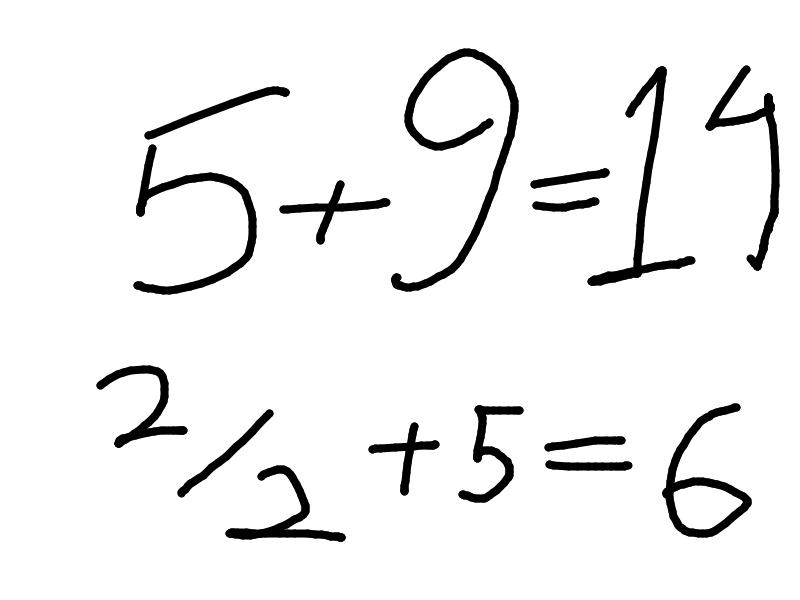 5+9=14
2/2+5=6